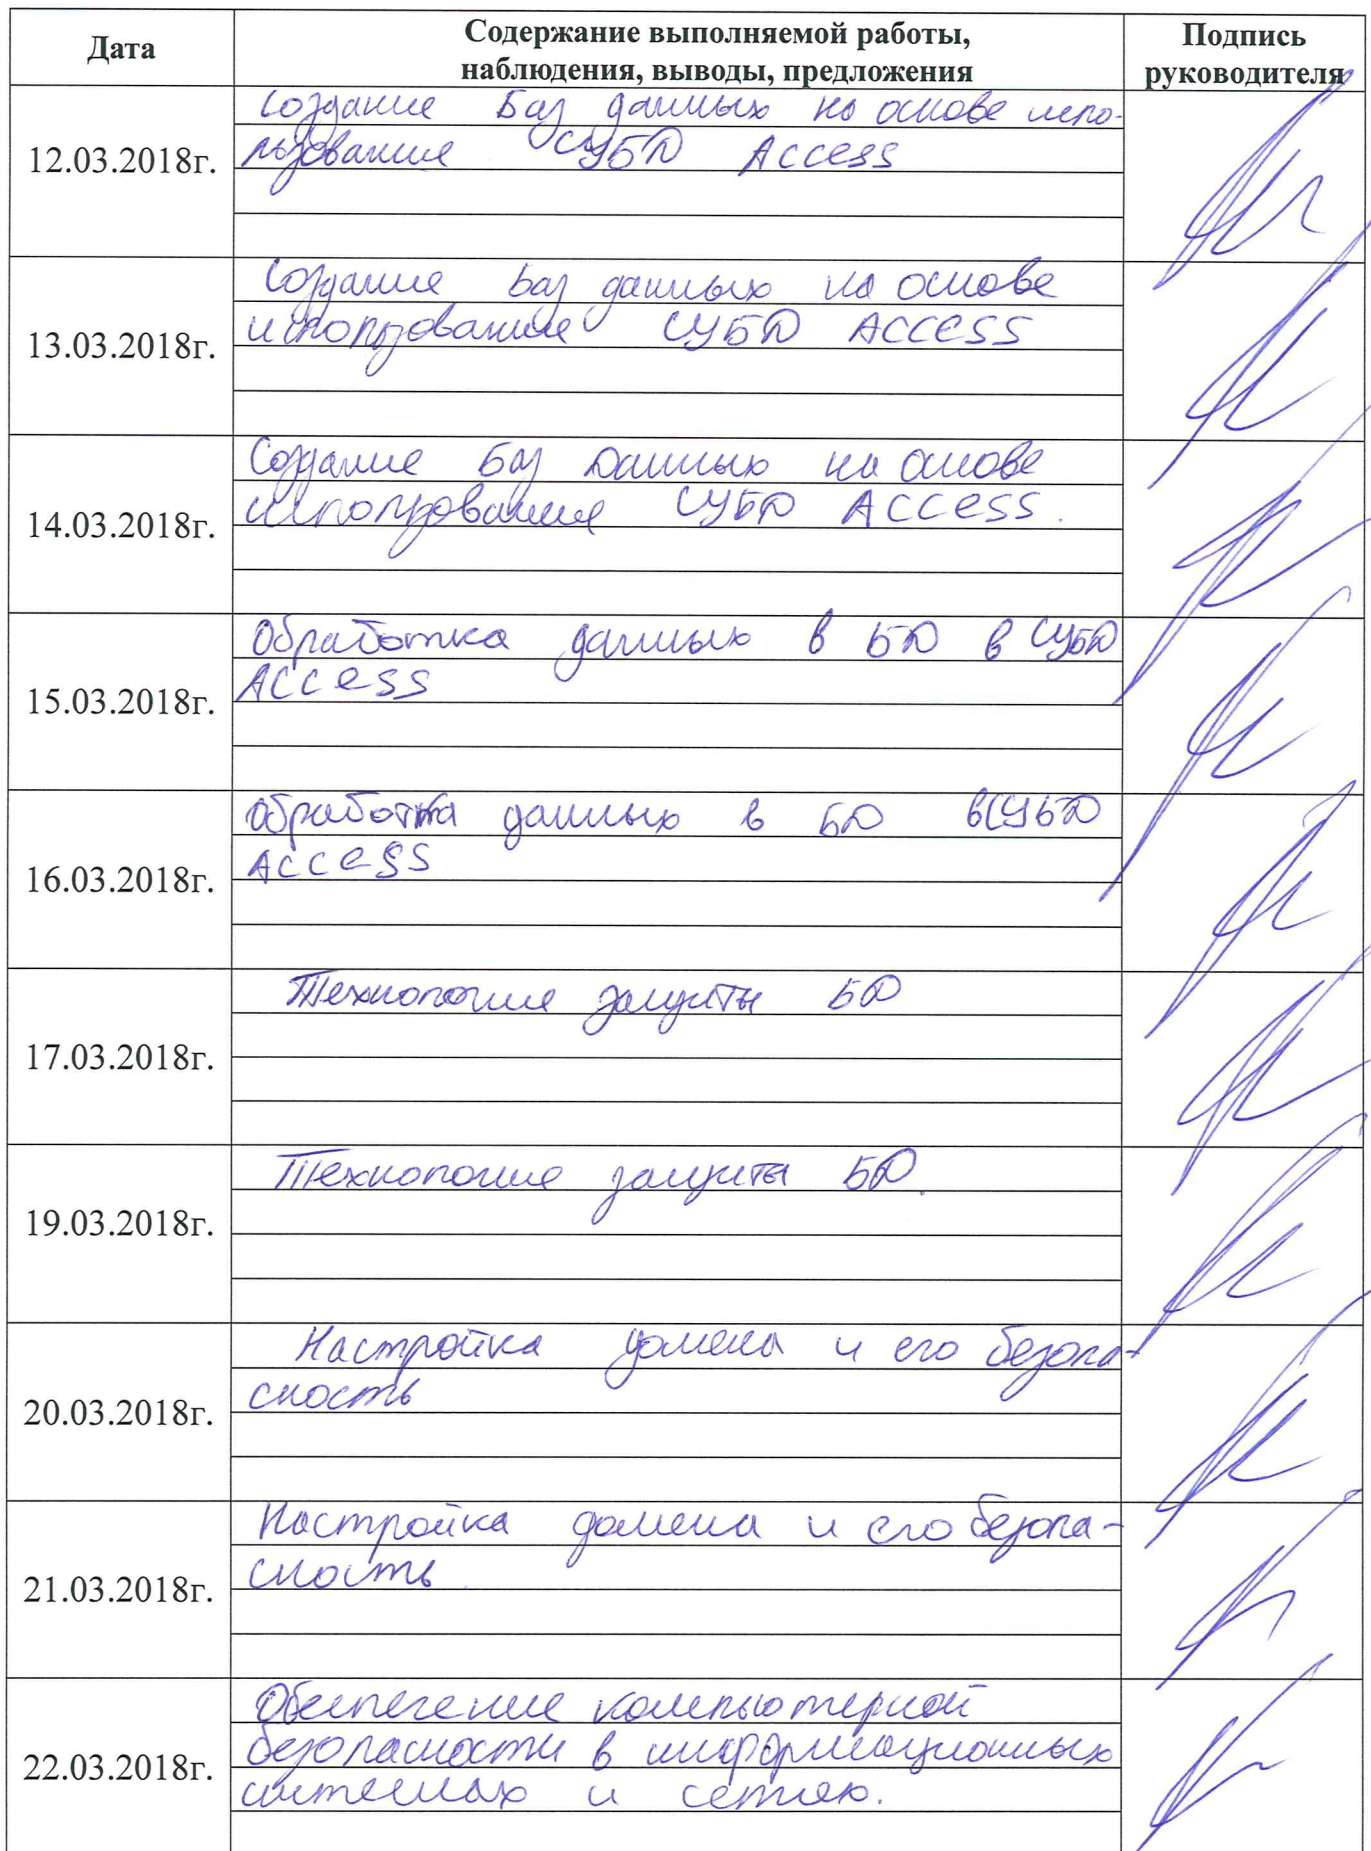 Дата
Содержание выполняемой работы,
наблюдения, выводы, предложения
Подпись
руководителя
12.03.2018г.
Создание Баз данных на основе испо-
льзования СУБД Access
13.03.2018г.
Создание баз данных на основе
использование СУБД Access
14.03.2018г.
Создание баз Данных на основе
использование СУБД Access.
15.03.2018г.
Обработка данных в БД в СУБД
Access
16.03.2018г.
Обработка данных в БД в СУБД
Access
17.03.2018г.
Технологие защиты БД
19.03.2018г.
Технологие защиты БД.
20.03.2018г.
Настройка домена и его безопа-
сность
21.03.2018г.
Настройка домена и его безопа-
сность
22.03.2018г.
Обеспечение компьютерной
безопасности в информационных
системах и сетях.